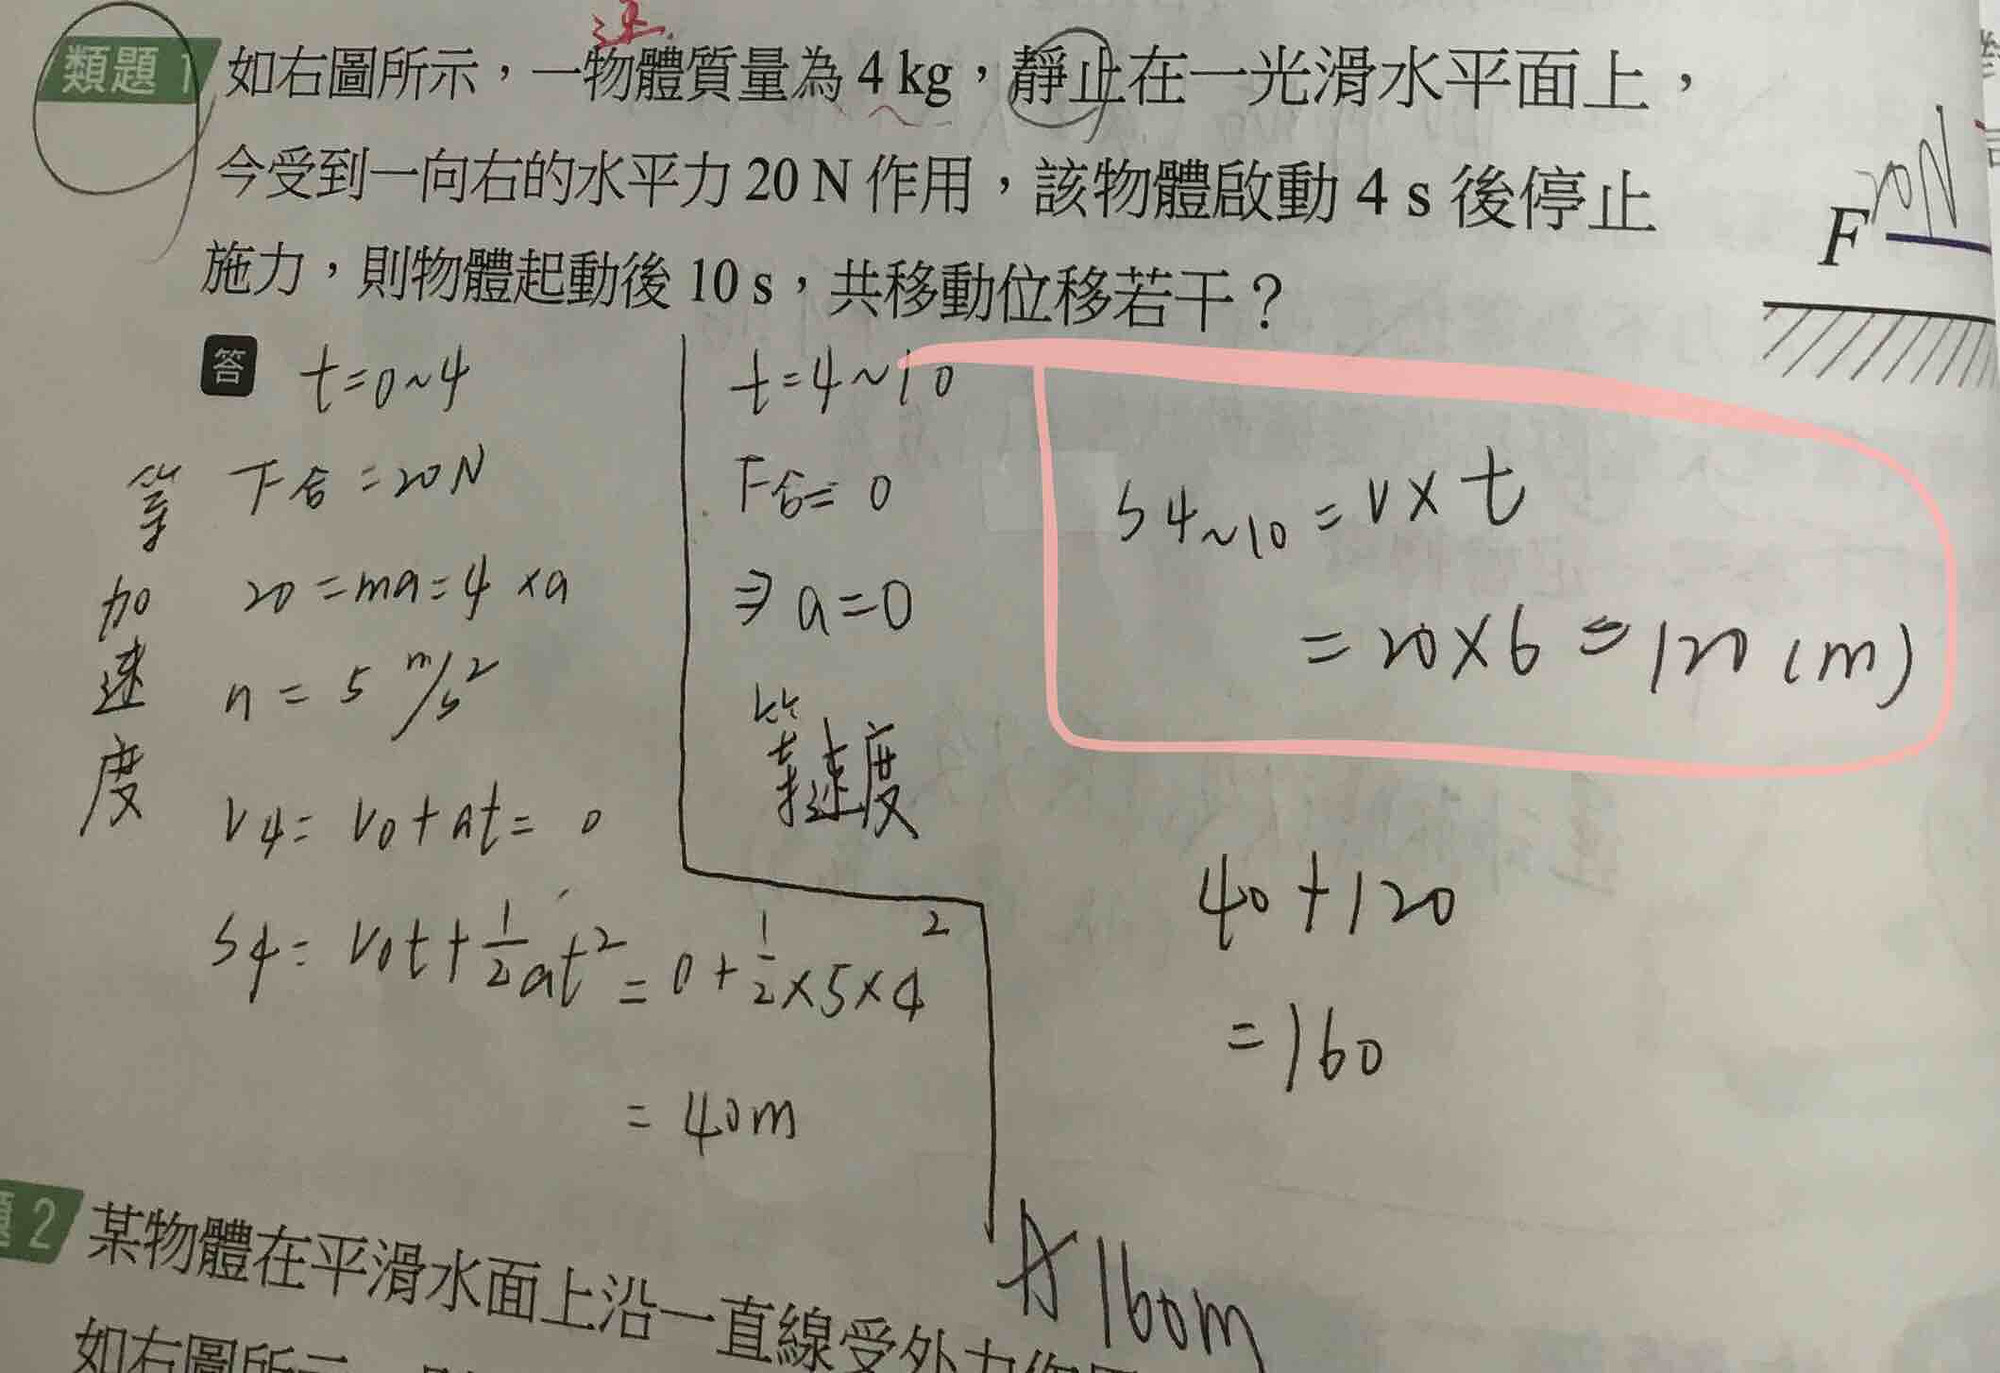 類題 1 如右圖所示，一物體質量為 4 kg，靜止在一光滑水平面上，
今受到一向右的水平力 20 N 作用，該物體啟動 4 s 後停止
施力，則物體起動後 10 s，共移動位移若干？
F 20N
答
t=0~4
等加速度
F合=20N
20=ma=4×a
a=5 m/s²
V4=V0+at=0
S4=V0t+1/2at²=0+1/2×5×4²
=40m
t=4~10
F合=0
⇒a=0
等速度
S4~10=V×t
=20×6=120(m)
40+120
=160
A 160m
題 2 某物體在平滑水面上沿一直線受外力作用
如右圖所示